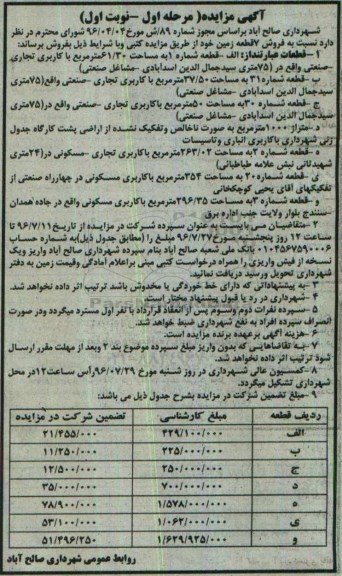 آگهی مزایده( مرحله اول –نوبت اول)
شهرداری صالح آباد براساس مجوز شماره ۸۹/ش مورخ۹۶/۰۴/۰۴ شورای محترم در نظر
دارد نسبت به فروش ۷قطعه زمین خود از طریق مزایده کتبی وبا شرایط ذیل بفروش برساند:
۱–قطعات عبارتنداز: الف –قطعه شماره ۱به مساحت ۶۱/۳۰مترمربع با کاربری تجاری
–صنعتی واقع در (۷۵متری سیدجمال الدین اسدآبادی –مشاغل صنعتی)
ب –قطعه شماره۳۱ به مساحت۳۷/۵۰مترمربع با کاربری تجاری –صنعتی واقع(۷۵متری
سیدجمال الدین اسدآبادی –مشاغل صنعتی)
ج –قطعه شماره ۳۰به مساحت ۵۰مترمربع باکاربری تجاری –صنعتی واقع در(۷۵متری
سیدجمال الدین اسدآبادی –مشاغل صنعتی)
د –متراژ ۱۰۰۰مترمربع به صورت ناخالص وتفکیک نشده از اراضی پشت کارگاه جدول
زنی شهرداری باکاربری انباری وتاسیسات
ه –قطعه شماره ۲به مساحت ۲۶۳/۰۲مترمربع باکاربری تجاری –مسکونی در(۲۴متری
شهیدثانی نبش علامه طباطبائی)
ی –قطعه شماره۲۰ به مساحت ۳۵۴مترمربع باکاربری مسکونی در چهارراه صنعتی از
تفکیکهای آقای یحیی کوچکخانی
و –قطعه شماره ۳به مساحت۲۹۶/۳۵مترمربع باکاربری مسکونی واقع در جاده همدان
–سنندج بلوار ولایت جنب اداره برق
۲ –متقاضیان می بایست به عنوان سپرده شرکت در مزایده از تاریخ۹۶/۷/۱ تا
ساعت ۱۲ روز پنجشنبه مورخ۹۶/۷/۲۷ مبلغ را (مطابق جدول ذیل)به شماره حساب
۰۱۰۴۵۶۷۵۹۰۰۰۶ بانک ملی شعبه صالح آباد بنام سپرده شهرداری صالح آباد واریز ویک
نسخه از فیش واریزی را همراه درخواست کتبی مبنی براعلام آمادگی وقیمت زمین به دفتر
شهرداری تحویل ورسید دریافت نمائید.
۳ –به پیشنهاداتی که دارای خط خوردگی یا مخدوش باشد ترتیب اثر داده نخواهد شد.
۴ –شهرداری در رد یا قبول پیشنهاد مختار است.
۵ –سپرده نفرات دوم وسوم پس از انعقاد قرارداد با نفر اول مسترد میگردد ودر صورت
انصراف سپرده افراد به نفع شهرداری ضبط خواهد شد.
۶ –هزینه آگهی برعهده برنده مزایده است.
۷ –به تقاضاهایی که بدون واریز مبلغ سپرده موضوع بند ۲ وبعد از مهلت مقرر ارسال
شود ترتیب اثر داده نخواهد شد.
۸ –کمسیون عالی شهرداری در روز شنبه مورخ ۹۶/۰۷/۲۹رأس ساعت۱۲در محل
شهرداری تشکیل میگردد.
۹ –مبلغ تضمین شرکت در مزایده بشرح جدول ذیل می باشد:
ردیف قطعه مبلغ کارشناسی تضمین شرکت در مزایده
الف ۴۲۹/۱۰۰/۰۰۰ ۲۱/۴۵۵/۰۰۰
ب ۲۲۵/۰۰۰/۰۰۰ ۱۱/۲۵۰/۰۰۰
ج ۲۵۰/۰۰۰/۰۰۰ ۱۲/۵۰۰/۰۰۰
د ۷۰۰/۰۰۰/۰۰۰ ۳۵/۰۰۰/۰۰۰
ه ۱/۵۷۸/۰۰۰/۰۰۰ ۷۸/۹۰۰/۰۰۰
ی ۱/۰۶۲/۰۰۰/۰۰۰ ۵۳/۱۰۰/۰۰۰
و ۱/۶۲۹/۹۲۵/۰۰۰ ۵۱/۴۹۶/۲۵۰
روابط عمومی شهرداری صالح آباد